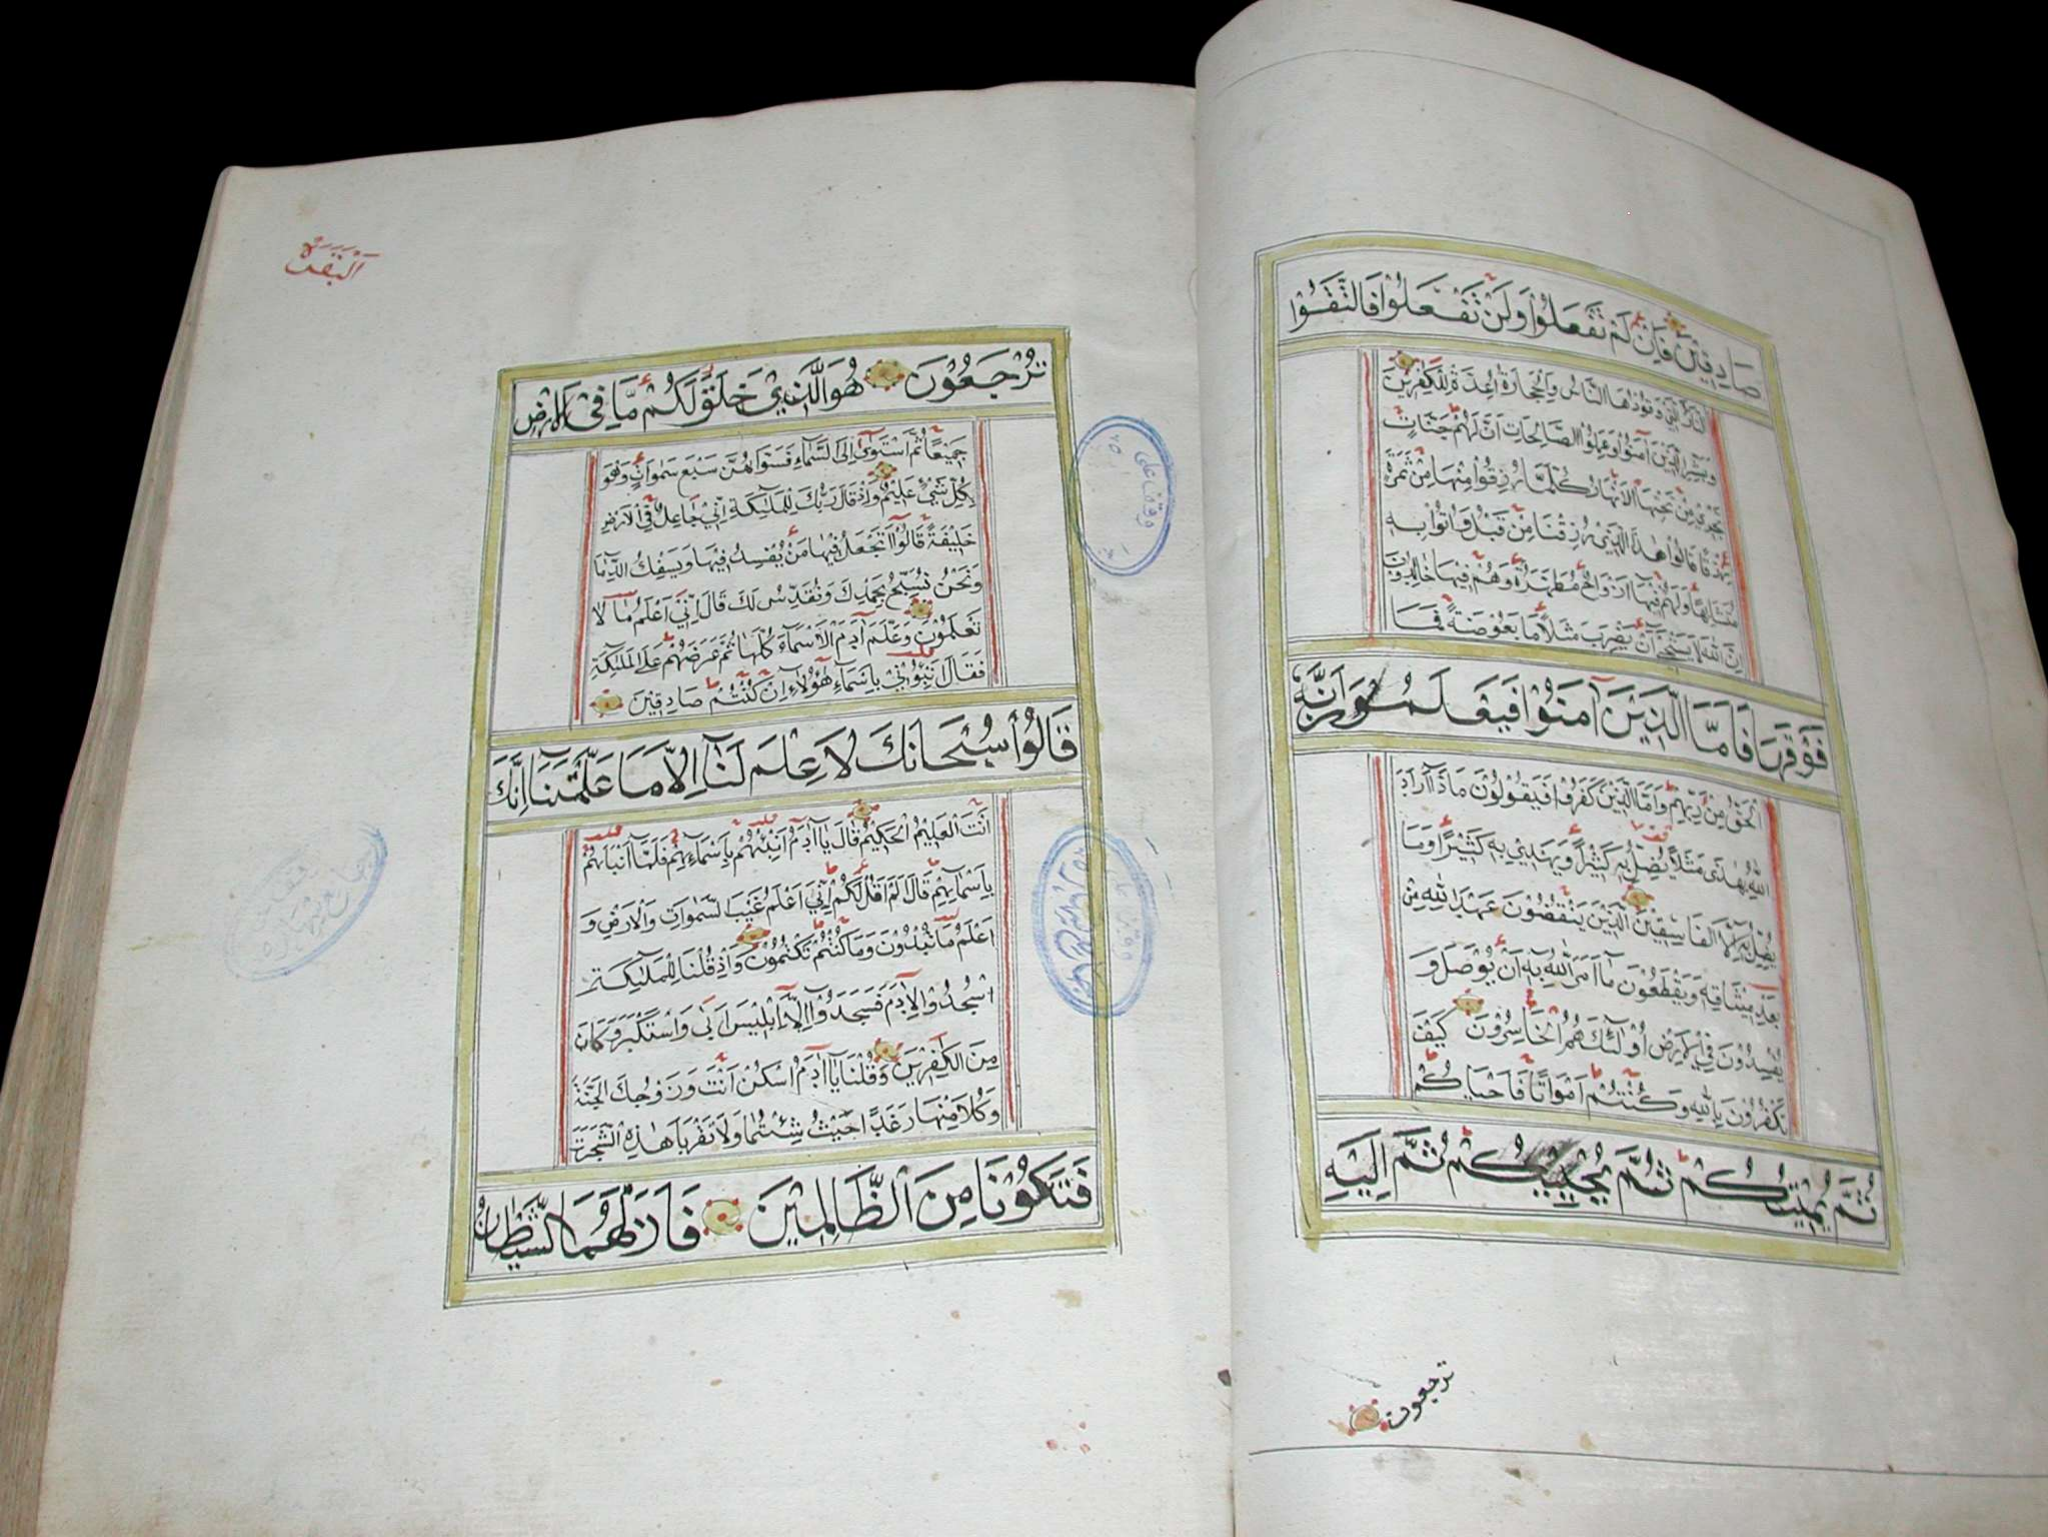 صَادِقِيْنَ فَاِنْ لَمْ تَفْعَلُوْا وَلَنْ تَفْعَلُوْا فَالتَّقُوْا
النَّارَ الَّتِيْ وَقُوْدُهَا النَّاسُ وَالْحِجَارَةُ اُعِدَّةْ لِلْكَافِرِيْنَ
وَبَشِّرِ الَّذِيْنَ آمَنُوْا وَعَمِلُوْا الصَّالِحَاتِ اَنَّ لَهُمْ جَنَّاتٍ
تَجْرِيْ مِنْ تَحْتِهَا الْاَنْهَارُ كُلَّمَا رُزِقُوْا مِنْهَا مِنْ ثَمَرَةٍ
رِزْقًا قَالُوْا هٰذَا الَّذِيْ رُزِقْنَا مِنْ قَبْلُ وَاُتُوْا بِهِ
مُتَشَابِهًا وَلَهُمْ فِيْهَا اَزْوَاجٌ مُطَهَّرَةٌ وَهُمْ فِيْهَا خَالِدُوْنَ
اِنَّ اللّٰهَ لَا يَسْتَحْيٖ اَنْ يَضْرِبَ مَثَلًا مَا بَعُوْضَةً فَمَا
فَوْقَهَا فَاَمَّا الَّذِيْنَ آمَنُوْا فَيَعْلَمُوْنَ اَنَّهُ
الْحَقُّ مِنْ رَبِّهِمْ وَاَمَّا الَّذِيْنَ كَفَرُوْا فَيَقُوْلُوْنَ مَاذَا اَرَادَ
اللّٰهُ بِهٰذَى مَثَلًا يُضِلُّ بِهِ كَثِيْرًا وَيَهْدِيْ بِهِ كَثِيْرًا وَمَا
يُضِلُّ بِهِ اِلَّا الْفَاسِقِيْنَ الَّذِيْنَ يَنْقُضُوْنَ عَهْدَ اللّٰهِ مِنْ
بَعْدِ مِيْثَاقِهِ وَيَقْطَعُوْنَ مَا اَمَرَ اللّٰهُ بِهِ اَنْ يُوْصَلَ وَ
يُفْسِدُوْنَ فِي الْاَرْضِ اُوْلٰئِكَ هُمُ الْخَاسِرُوْنَ كَيْفَ
تَكْفُرُوْنَ بِاللّٰهِ وَكُنْتُمْ اَمْوَاتًا فَاَحْيَاكُمْ
ثُمَّ يُمِيْتُكُمْ ثُمَّ يُحْيِيْكُمْ ثُمَّ اِلَيْهِ
ترجعون
اَلْبَقَرَة
تُرْجَعُوْنَ هُوَ الَّذِيْ خَلَقَ لَكُمْ مَا فِي الْاَرْضِ
جَمِيْعًا ثُمَّ اسْتَوٰى اِلَى السَّمَاءِ فَسَوّٰاهُنَّ سَبْعَ سَمٰوَاتٍ وَهُوَ
بِكُلِّ شَيْءٍ عَلِيْمٌ وَاِذْ قَالَ رَبُّكَ لِلْمَلٰئِكَةِ اِنِّيْ جَاعِلٌ فِي الْاَرْضِ
خَلِيْفَةً قَالُوْا اَتَجْعَلُ فِيْهَا مَنْ يُفْسِدُ فِيْهَا وَيَسْفِكُ الدِّمَا
وَنَحْنُ نُسَبِّحُ بِحَمْدِكَ وَنُقَدِّسُ لَكَ قَالَ اِنِّيْ اَعْلَمُ مَا لَا
تَعْلَمُوْنَ وَعَلَّمَ آدَمَ الْاَسْمَاءَ كُلَّهَا ثُمَّ عَرَضَهُمْ عَلَى الْمَلٰئِكَةِ
فَقَالَ نَبِّؤُنِيْ بِاَسْمَاءِ هٰؤُلَاءِ اِنْ كُنْتُمْ صَادِقِيْنَ
قَالُوْا سُبْحَانَكَ لَا عِلْمَ لَنَا اِلَّا مَا عَلَّمْتَنَا اِنَّكَ
اَنْتَ الْعَلِيْمُ الْحَكِيْمُ قَالَ يَا آدَمُ اَنْبِئْهُمْ بِاَسْمَاءِهِمْ فَلَمَّا اَنْبَاَهُمْ
بِاَسْمَائِهِمْ قَالَ اَلَمْ اَقُلْ لَكُمْ اِنِّيْ اَعْلَمُ غَيْبَ السَّمٰوَاتِ وَالْاَرْضِ وَ
اَعْلَمُ مَا تُبْدُوْنَ وَمَا كُنْتُمْ تَكْتُمُوْنَ وَاِذْ قُلْنَا لِلْمَلٰئِكَةِ
اسْجُدُوْا لِآدَمَ فَسَجَدُوْا اِلَّا اِبْلِيْسَ اَبٰى وَاسْتَكْبَرَ وَكَانَ
مِنَ الْكٰفِرِيْنَ وَقُلْنَا يَا آدَمُ اسْكُنْ اَنْتَ وَزَوْجُكَ الْجَنَّةَ
وَكُلَا مِنْهَا رَغَدًا حَيْثُ شِئْتُمَا وَلَا تَقْرَبَا هٰذِهِ الشَّجَرَةَ
فَتَكُوْنَا مِنَ الظَّالِمِيْنَ فَاَزَلَّهُمَا الشَّيْطَانُ